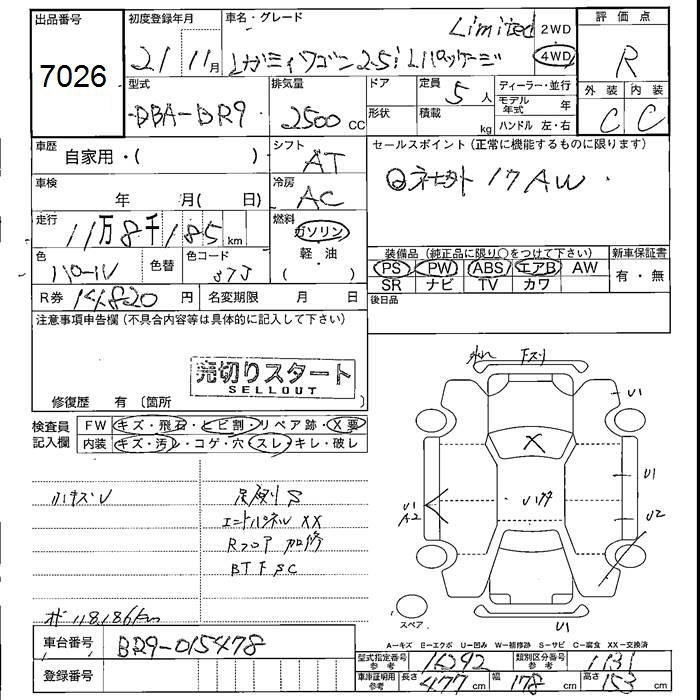 出品番号 初度登録年月 車名・グレード 評価点
7026 21 11月 レガシィワゴン 2.5i Lパッケージ Limited 2WD 4WD R
型式 排気量 ドア 定員 ディーラー・並行 外装 内装
DBA-BR9 2500 CC 形状 5人 積載 kg モデル年式 年 ハンドル 左・右 C C
車歴 自家用・( ) シフト AT セールスポイント(正常に機能するものに限ります)
車検 年 月(日) 冷房 AC 17AW
走行 11万8千185 km 燃料 ガソリン
軽・油
色 パール 色替 色コード 37J 装備品(純正品に限り○をつけて下さい) 新車保証書
PS PW ABS エアB AW 有・無
SR ナビ TV カワ
R券 14820 円 名変期限 月 日 後日品
注意事項申告欄(不具合内容等は具体的に記入して下さい)
売切りスタート
SELLOUT
修復歴 有(箇所 )
検査員記入欄 FW キズ・飛石・ヒビ割・リペア跡・X要
内装 キズ・汚レ・コゲ・穴・スレ・キレ・破レ
ハキズU 足廻りS
エンドパネルXX
Rフロア加修
BTFSC
118186km
U1
X
U1
U1 A2
U2
スペア
U1
車台番号 BR9-015478
登録番号
A-キズ E-エクボ U-凹み W-補修跡 S-サビ C-腐食 XX-交換済
型式指定番号 参考 16292 類別区分番号 参考 1131
車庫証明用 参考 長さ 477 cm 幅 178 cm 高さ 153 cm